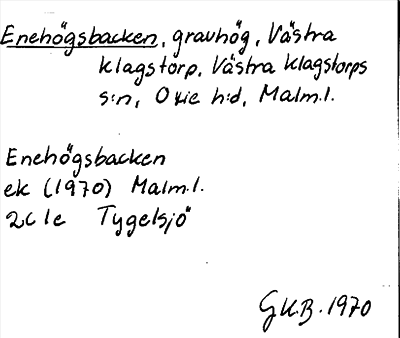 Enehögsbacken, gravhög, Västra
Klagstorp, Västra Klagstorps
s:n, Oxie h:d, Malm.l.
Enehögsbacken
ek (1970) Malm.l.
2C 1e Tygelsjö
GKB. 1970